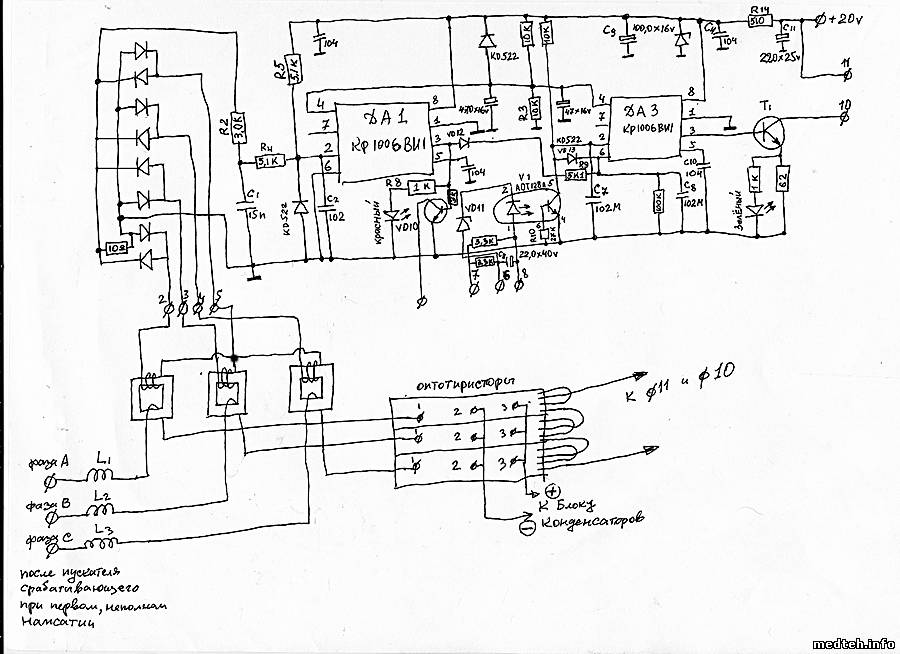 104
R5
5,1K
R2
3,0K
R4
5,1K
C1
15п
КД522
C2
102
4
7
2
6
8
1
3
5
ДА1
КР1006ВИ1
КД522
47,0×16v
104
VD12
R8
1К
красный
VD10
10К
10К
R3
10К
47×16v
VD11
V1
АОТ128а
2
1
5
4
6
3,3К
R10
22,0×40v
7
8
КД522
VD13
R9
5К1
C7
102М
C9
100,0×16v
C4
104
ДА3
КР1006ВИ1
4
7
2
6
8
1
3
5
C10
104
100К
C8
102М
R14
510
C11
220×25v
+20v
11
10
T1
1К
62
зелёный
10Ω
2
3
4
5
оптотиристоры
1
2
3
1
2
3
1
2
3
к ф11 и ф10
+
к Блоку
− Конденсаторов
фаза А
L1
фаза В
L2
фаза С
L3
после пускателя
срабатывающего
при первом, неполном
нажатии
medteh.info